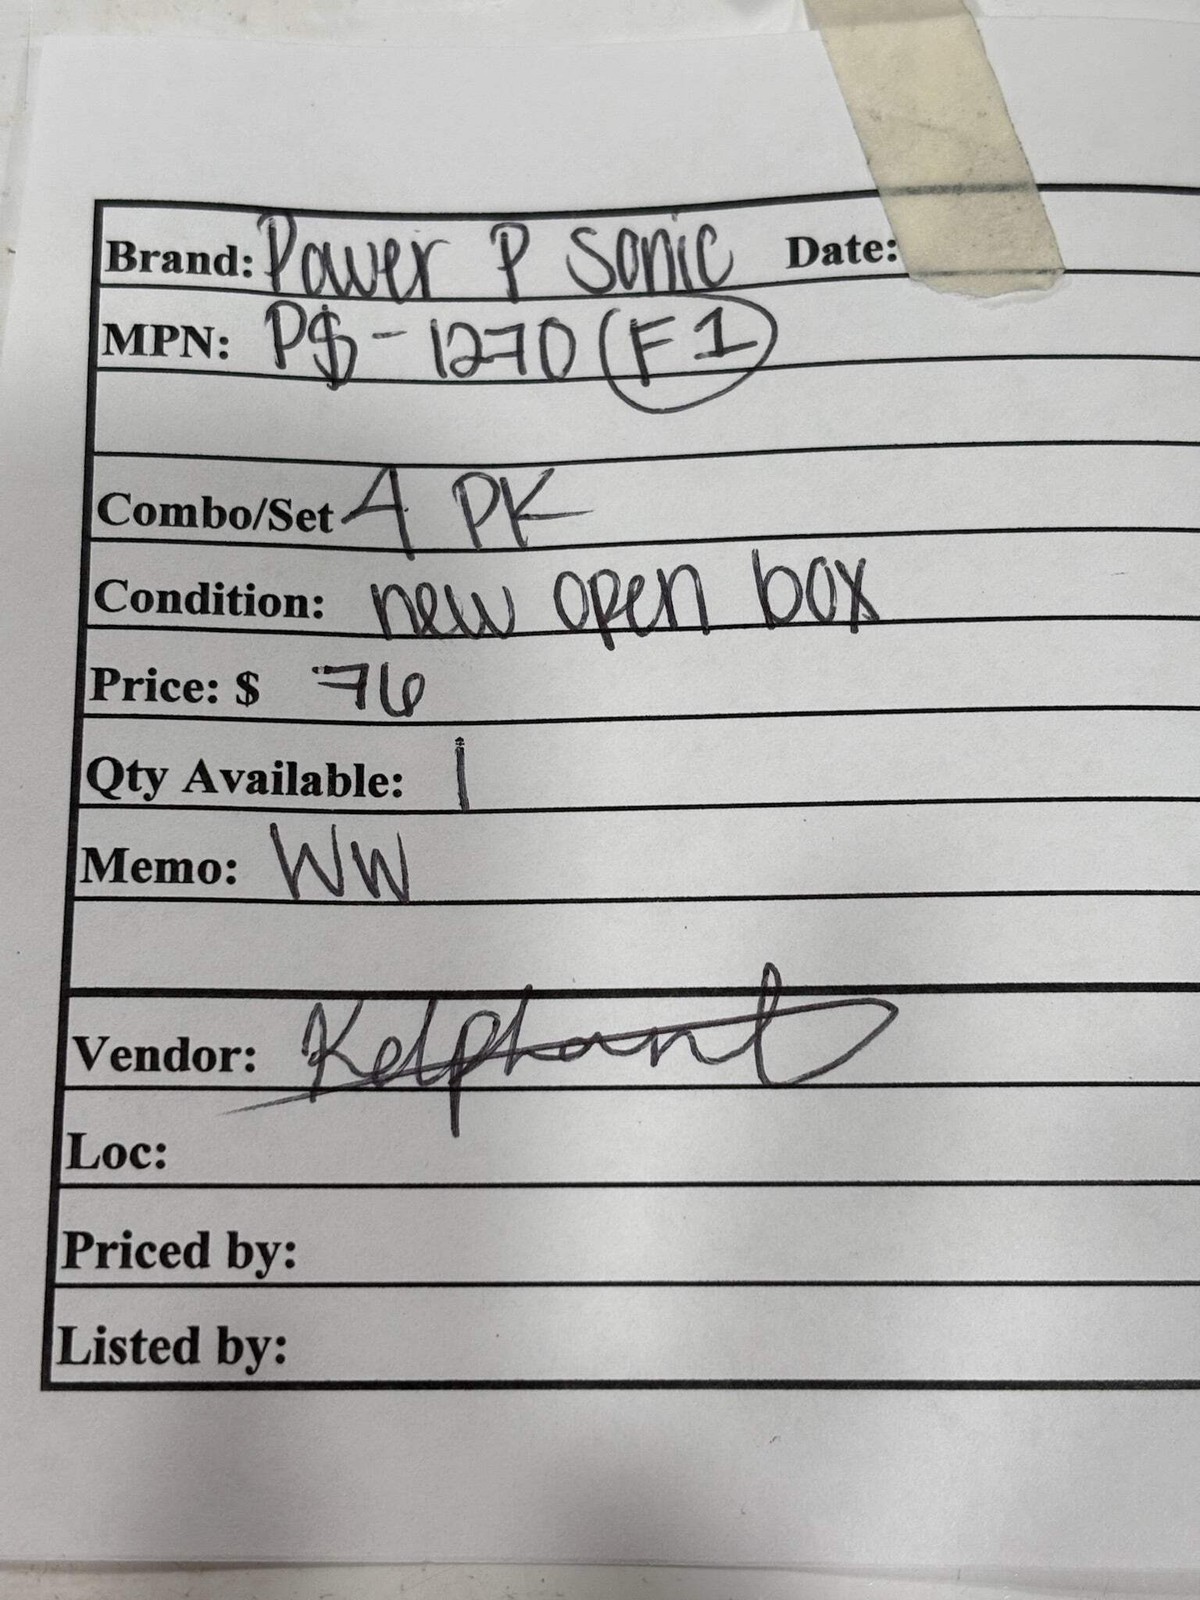 Brand: Power P Sonic Date:
MPN: P$-1270 (F1)
Combo/Set 4 PK
Condition: new open box
Price: $ 76
Qty Available: 1
Memo: WW
Vendor:
Loc:
Priced by:
Listed by: